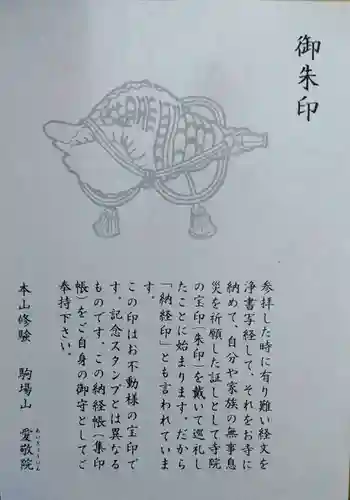 御朱印
参拝した時に有り難い経文を
浄書写経して、それをお寺に
納めて、自分や家族の無事息
災を祈願した証しとして寺院
の宝印「朱印」を戴いて巡礼し
たことに始まります。だから
「納経印」とも言われていま
す。
この印はお不動様の宝印で
す。記念スタンプとは異なる
ものです。この納経帳（集印
帳）をご自身の御守としてご
奉持下さい。
本山修験 駒場山 愛敬院
あいきょういん